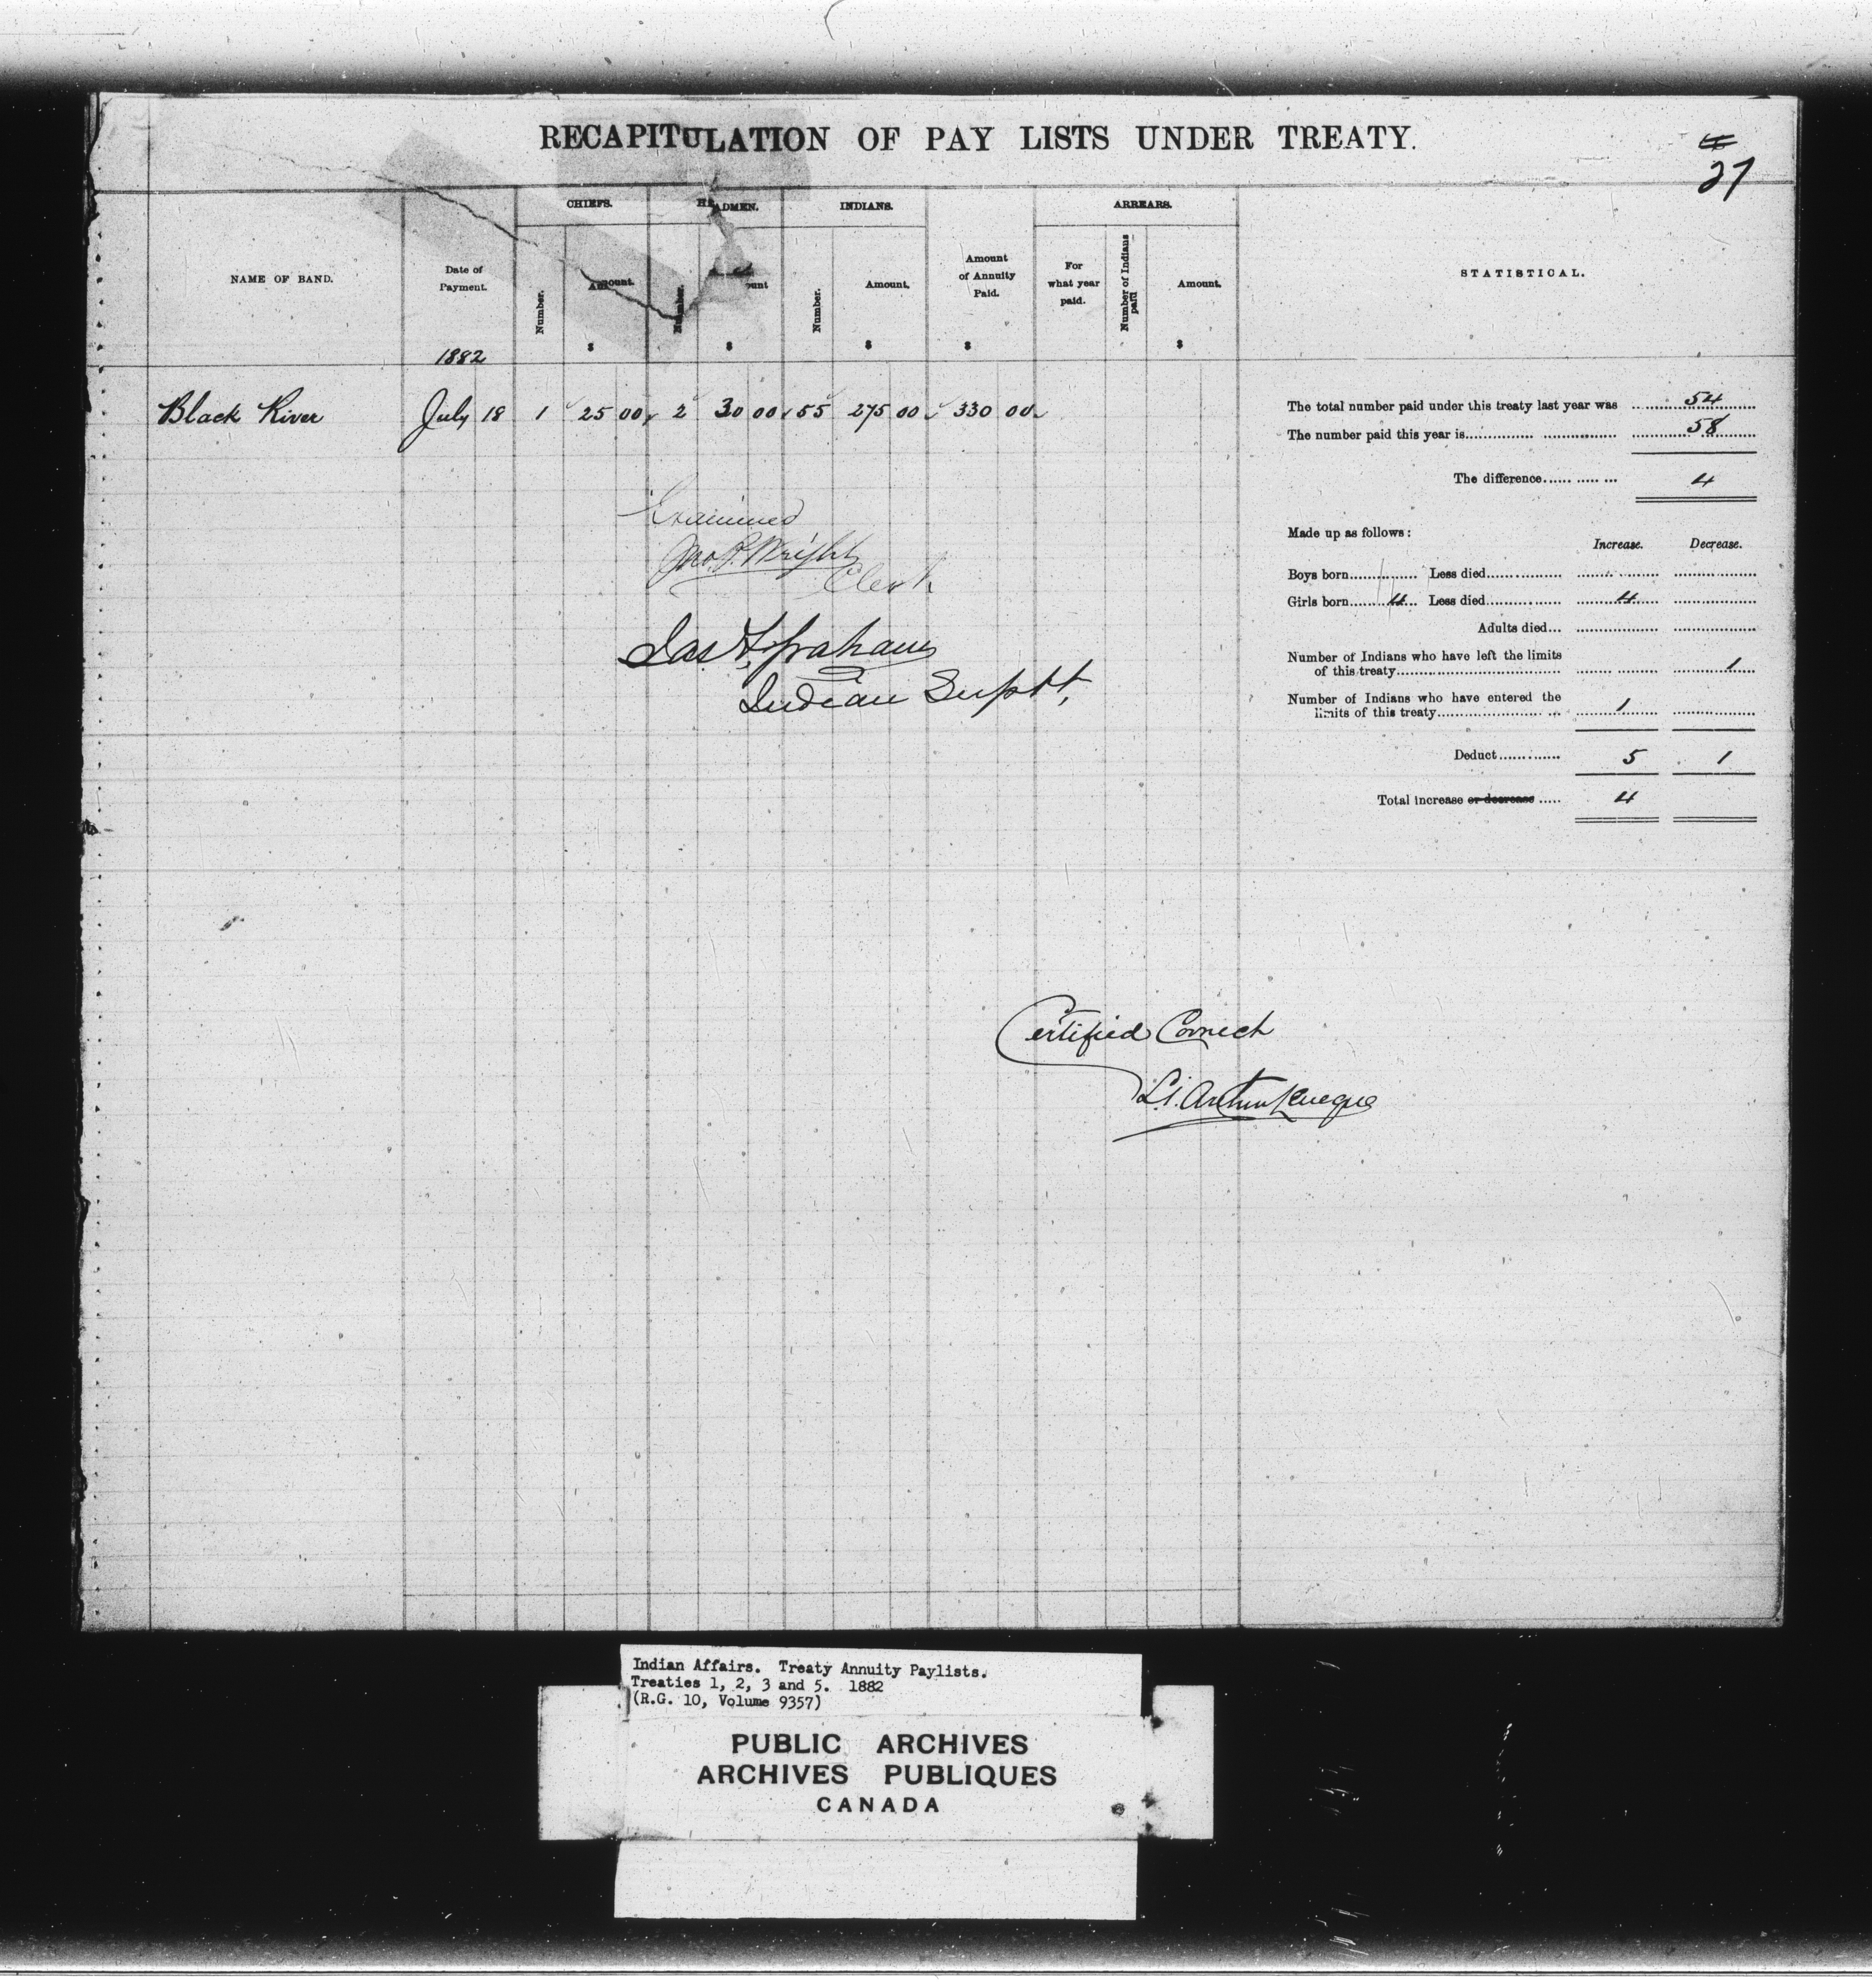 RECAPITULATION OF PAY LISTS UNDER TREATY.
27
CHIEFS. HEADMEN. INDIANS. ARREARS.
NAME OF BAND. Date of Payment. Number. Amount. Number. Amount Number. Amount. Amount of Annuity Paid. For what year paid. Number of Indians paid Amount. STATISTICAL.
$ $ $ $ $
1882
Black River July 18 1 25 00 2 30 00 55 275 00 330 00
The total number paid under this treaty last year was 54
The number paid this year is 58
The difference 4
Made up as follows:
Increase. Decrease.
Boys born Less died
Girls born 4 Less died 4
Adults died
Number of Indians who have left the limits
of this treaty 1
Number of Indians who have entered the
limits of this treaty 1
Deduct 5 1
Total increase or decrease 4
Examined
Jno. P. Wright
Clerk
Jas. F. Graham
Indian Suptt.
Certified Correct
L. Arthur Leveque
Indian Affairs. Treaty Annuity Paylists.
Treaties 1, 2, 3 and 5. 1882
(R.G. 10, Volume 9357)
PUBLIC ARCHIVES
ARCHIVES PUBLIQUES
CANADA